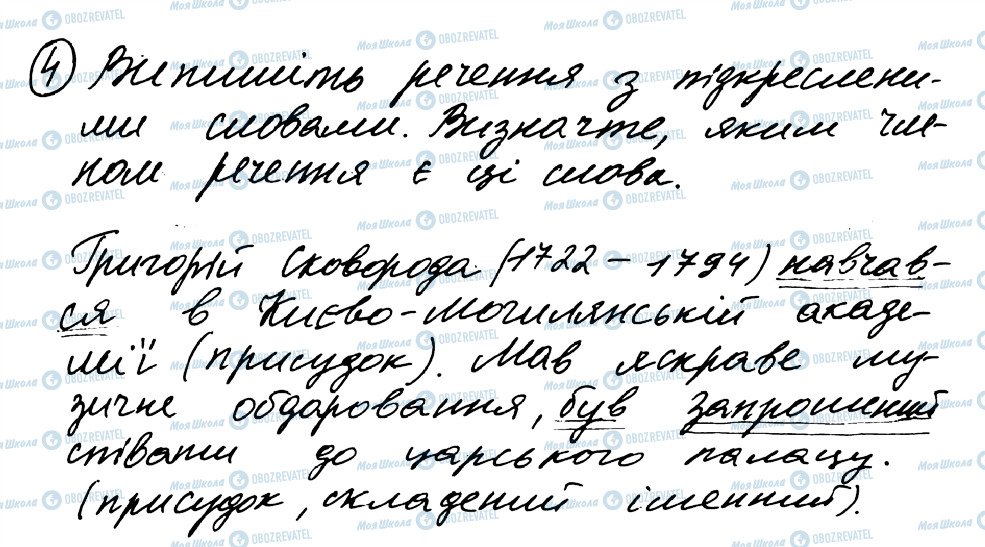 4 Випишіть речення з підкреслени-
ми словами. Визначте, яким чле-
ном речення є ці слова.
Григорій Сковорода (1722 – 1794) навчав-
ся в Києво-Могилянській акаде-
мії (присудок). Мав яскраве му-
зичне обдаровання, був запрошений
співати до царського палацу.
(присудок, складений іменний).